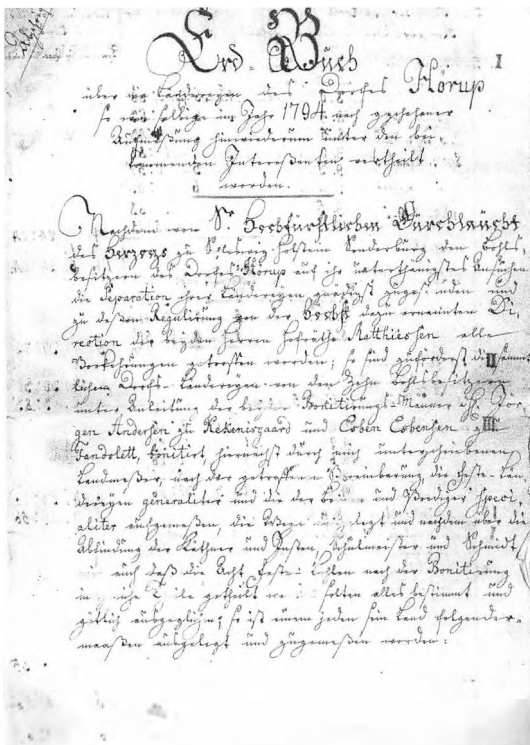 Abschrift
Erd-Buch I
über die Ländereyen des Dorfes Hörup
so wie selbige im Jahr 1794 nach geschehener
Aufmeßung hinwiederum unter den bei-
kommenden Intereßenten vertheilt
worden.
Nachdem von Sr Hochfürstlichen Durchlaucht
des Herzogs zu Schleswig-Holstein Sonderburg den Bohls-
besitzern des Dorfes Hörup auf ihr unterthänigstes Ansuchen
die Separation ihrer Ländereyen und
zu deßen Regulirung von der Höchst dazu ernannten Di-
rection die beyden Herren Hofräthe Matthiessen alle
Vorkehrungen getroffen worden; so sind zuförderst die sämmt- II
lichen Dorfs-Ländereyen von den Zehn Bohlsbesitzern
unter Anleitung der Bonitirungs-Männer Jör-
gen Andersen zu Kekenisgaard und Esben Esbensen III
bonitirt, hiernächst durch mich unterschriebenen
Landmeßer, nach der getroffenen Vereinbarung, die Feste-Län-
dereyen generaliter und die der und Prediger speci-
aliter aufgemeßen, die Wege gelegt und nachdem über die
Abfindung der Käthner und Insten, Schulmeister und Schmidt
auch daß die Acht Feste nach der Bonitirung
in getheilt sollen alles bestimmt und
gütlich ausgeglichen; so ist einem jeden sein Land folgender-
maaßen ausgelegt und zugemeßen worden: